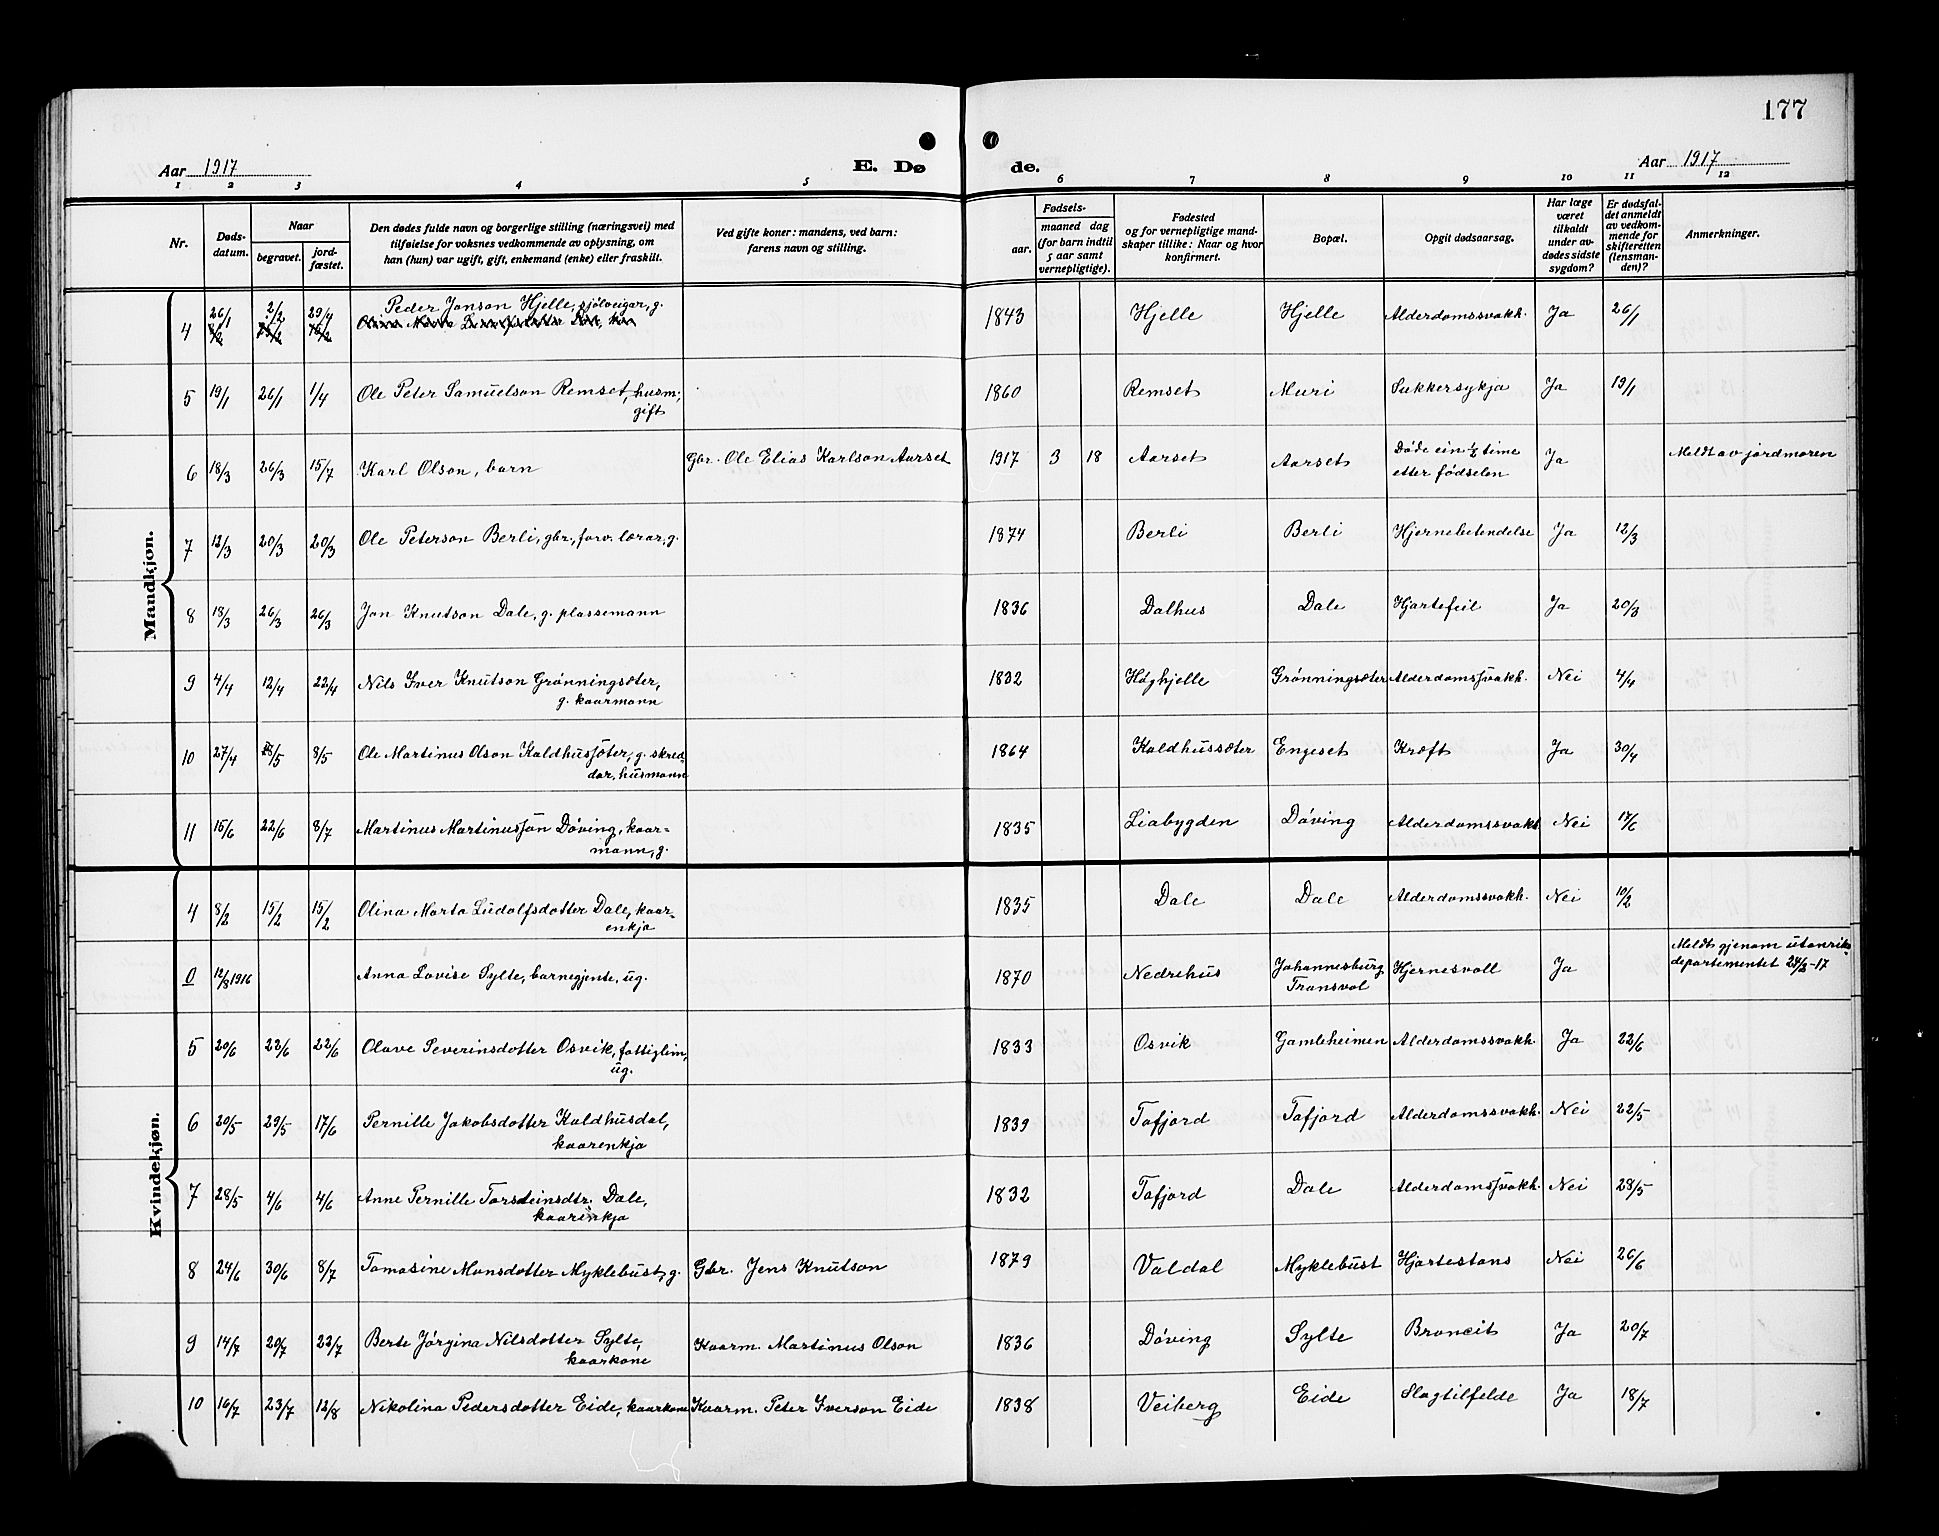 177
Aar 1917
E. Dø
de.
Aar 1917
1 2 3 4 5 6 7 8 9 10 11 12
Nr.
Døds-
datum.
Naar
begravet.
jord-
fæstet.
Den dødes fulde navn og borgerlige stilling (næringsvei) med
tilføielse for voksnes vedkommende av oplysning, om
han (hun) var ugift, gift, enkemand (enke) eller fraskilt.
Ved gifte koner: mandens, ved barn:
farens navn og stilling.
Fødsels-
aar.
maaned dag
(for barn indtil
5 aar samt
vernepligtige).
Fødested
og for vernepligtige mand-
skaper tillike: Naar og hvor
konfirmert.
Bopæl.
Opgit dødsaarsag.
Har læge
været
tilkaldt
under av-
dødes sidste
sygdom?
Er dødsfal-
det anmeldt
av vedkom-
mende for
skifteretten
(lensman-
den)?
Anmerkninger.
Mandkjøn.
4 26/1 2/2 29/4 Peder Jonson Hjelle, sjølveigar, g. 1843 Hjelle Hjelle Alderdomssvakh. Ja 26/1
5 19/1 26/1 1/4 Ole Peter Samuelson Remset, husm., 1860 Remset Muri Sukkersykja Ja 19/1
gift
6 18/3 26/3 15/7 Karl Olson, barn Gbr. Ole Elias Karlson Aarset 1917 3 18 Aarset Aarset Døde ein 1/2 time Ja Meldt av jordmoren
etter fødselen
7 12/3 20/3 20/3 Ole Peterson Berli, gbr., forv. lærar, g. 1874 Berli Berli Hjernebetendelse Ja 12/3
8 18/3 26/3 26/3 Jon Knutson Dale, g. plassemann 1836 Dalhus Dale Hjartefeil Ja 20/3
9 4/4 12/4 22/4 Nils Iver Knutson Grønningsæter, 1832 Høghjelle Grønningsæter Alderdomssvakh. Nei 4/4
g. kaarmann
10 27/4 8/5 8/5 Ole Martinus Olson Kaldhussæter, g. skred- 1864 Kaldhussæter Engeset Kræft Ja 30/4
dar, husmann
11 15/6 22/6 8/7 Martinus Martinusson Døving, kaar- 1835 Liabygden Døving Alderdomssvakh Nei 17/6
mann, g.
Kvindekjøn.
4 8/2 15/2 15/2 Olina Marta Ludolfsdotter Dale, kaar- 1835 Dale Dale Alderdomssvakh. Nei 10/2
enkja
0 12/8 1916 Anna Lovise Sylte, barnegjente, ug. 1870 Nedrehus Johannesburg Hjernesvoll Ja Meldt gjenom utanriks-
Transval departementet 24/2-17
5 20/6 22/6 22/6 Olave Severinsdotter Osvik, fattiglim, 1833 Osvik Gamleheimen Alderdomssvakh. Ja 22/6
ug.
6 20/5 29/5 17/6 Pernille Jakobsdotter Kaldhusdal, 1839 Tafjord Tafjord Alderdomssvakh. Nei 22/5
kaarenkja
7 28/5 4/6 4/6 Anne Pernille Torsteinsdtr. Dale, 1832 Tafjord Dale Alderdomssvakh. Nei 28/5
kaarenkja
8 24/6 30/6 8/7 Tomasine Monsdotter Myklebust, g. Gbr. Jens Knutson 1879 Valdal Myklebust Hjartestans Nei 26/6
9 14/7 20/7 22/7 Berte Jørgina Nilsdotter Sylte, Kaarm. Martinus Olson 1836 Døving Sylte Broncit Ja 20/7
kaarkone
10 16/7 23/7 12/8 Nikolina Pedersdotter Eide, kaarkone Kaarm. Peter Iverson Eide 1838 Veiberg Eide Slagtilfelde Ja 18/7